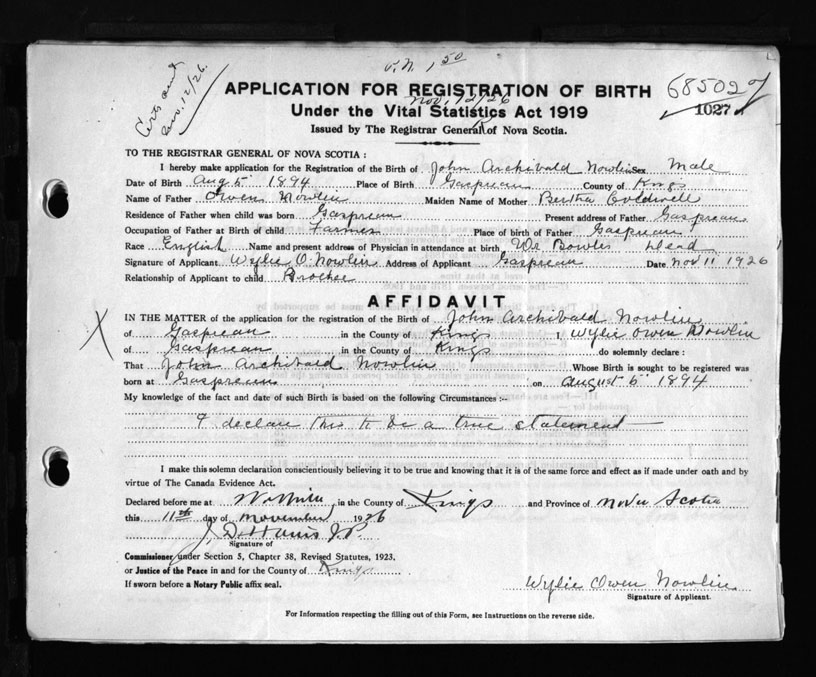 O.N. 1 50
Certs and
Nov. 12/26.
APPLICATION FOR REGISTRATION OF BIRTH
685027
Nov. 12/26
Under the Vital Statistics Act 1919
1027
Issued by The Registrar General of Nova Scotia.
TO THE REGISTRAR GENERAL OF NOVA SCOTIA :
I hereby make application for the Registration of the Birth of John Archibald Nowlin Sex Male
Date of Birth Aug 5 1894 Place of Birth Gaspreau County of Kings
Name of Father Owen Nowlin Maiden Name of Mother Bertha Coldwell
Residence of Father when child was born Gaspreau Present address of Father Gaspreau
Occupation of Father at Birth of child Farmer Place of birth of Father Gaspreau
Race English Name and present address of Physician in attendance at birth Dr Bowles Dead
Signature of Applicant Wylie O. Nowlin Address of Applicant Gaspreau Date Nov 11 1926
Relationship of Applicant to child Brother
AFFIDAVIT
IN THE MATTER of the application for the registration of the Birth of John Archibald Nowlin
X of Gaspreau in the County of Kings I, Wylie Owen Nowlin
of Gaspreau in the County of Kings do solemnly declare :
That John Archibald Nowlin Whose Birth is sought to be registered was
born at Gaspreau on August 5 1894
My knowledge of the fact and date of such Birth is based on the following Circumstances :--
I declare this to be a true statement
I make this solemn declaration conscientiously believing it to be true and knowing that it is of the same force and effect as if made under oath and by
virtue of The Canada Evidence Act.
Declared before me at in the County of Kings and Province of Nova Scotia
this 11th day of November 1926
J. D. Harris J.P.
Signature of
Commissioner under Section 5, Chapter 38, Revised Statutes, 1923.
or Justice of the Peace in and for the County of Kings
If sworn before a Notary Public affix seal.
Wylie Owen Nowlin
Signature of Applicant.
For Information respecting the filling out of this Form, see Instructions on the reverse side.